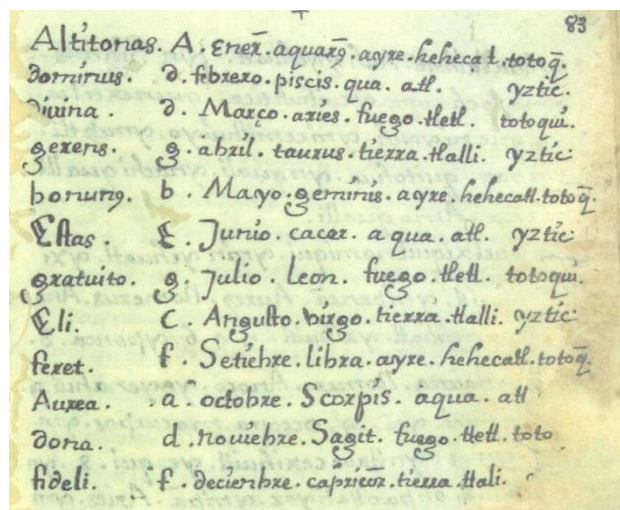 83
Altitonas. A. Ener̃. aquari9. ayre. hehecat. totoq̃.
dominus. d. febrero. piscis. qua. atl. yztic.
diuina. d. Março. aries. fuego. tletl. totoqui.
gerens. g. abril. taurus. tierra. tlalli. yztic.
bonum9. b. Mayo. geminis. ayre. hehecatl. totoq̃.
Estas. E. Junio. cacer. aqua. atl. yztic.
gratuito. g. Julio. Leon. fuego. tletl. totoqui.
Eli. C. Angusto. birgo. tierra. tlalli. yztic.
feret. f. Setiebre. libra. ayre. hehecatl. totoq̃.
Aurea. a. octobre. Scorpis. aqua. atl
dona. d. nouiebre. Sagit. fuego. tletl. toto
fideli. f. deciembre. capricor. tierra. tlali.